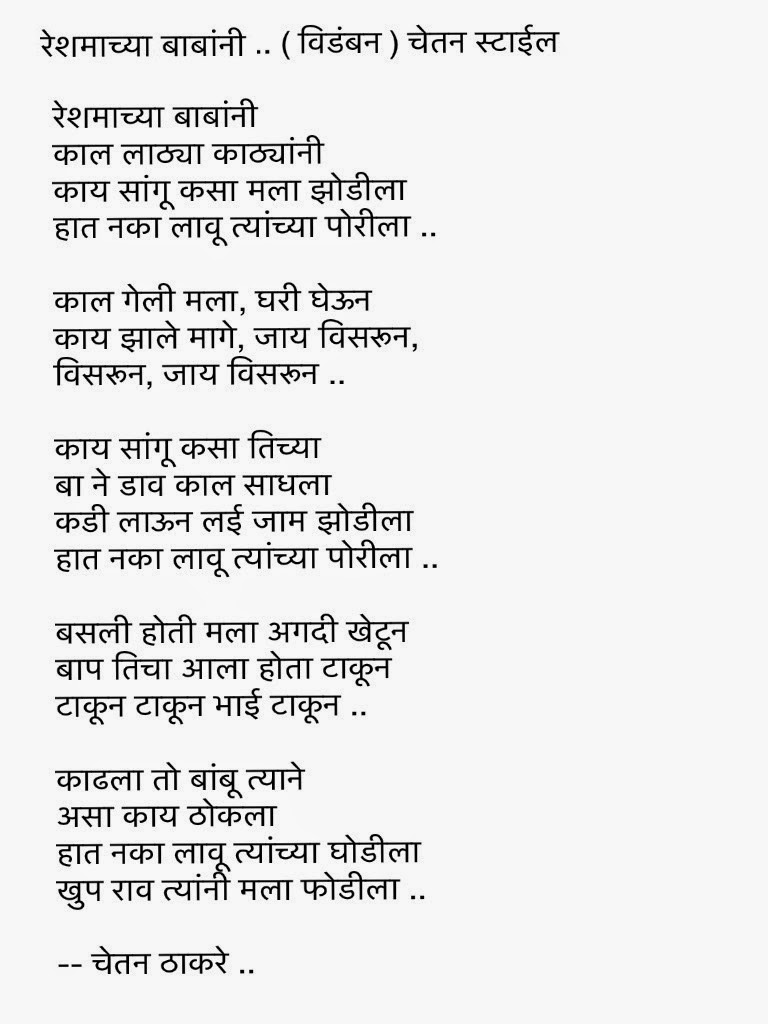 रेशमाच्या बाबांनी .. ( विडंबन ) चेतन स्टाईल
रेशमाच्या बाबांनी
काल लाठ्या काठ्यांनी
काय सांगू कसा मला झोडीला
हात नका लावू त्यांच्या पोरीला ..
काल गेली मला, घरी घेऊन
काय झाले मागे, जाय विसरून,
विसरून, जाय विसरून ..
काय सांगू कसा तिच्या
बा ने डाव काल साधला
कडी लाऊन लई जाम झोडीला
हात नका लावू त्यांच्या पोरीला ..
बसली होती मला अगदी खेटून
बाप तिचा आला होता टाकून
टाकून टाकून भाई टाकून ..
काढला तो बांबू त्याने
असा काय ठोकला
हात नका लावू त्यांच्या घोडीला
खुप राव त्यांनी मला फोडीला ..
-- चेतन ठाकरे ..